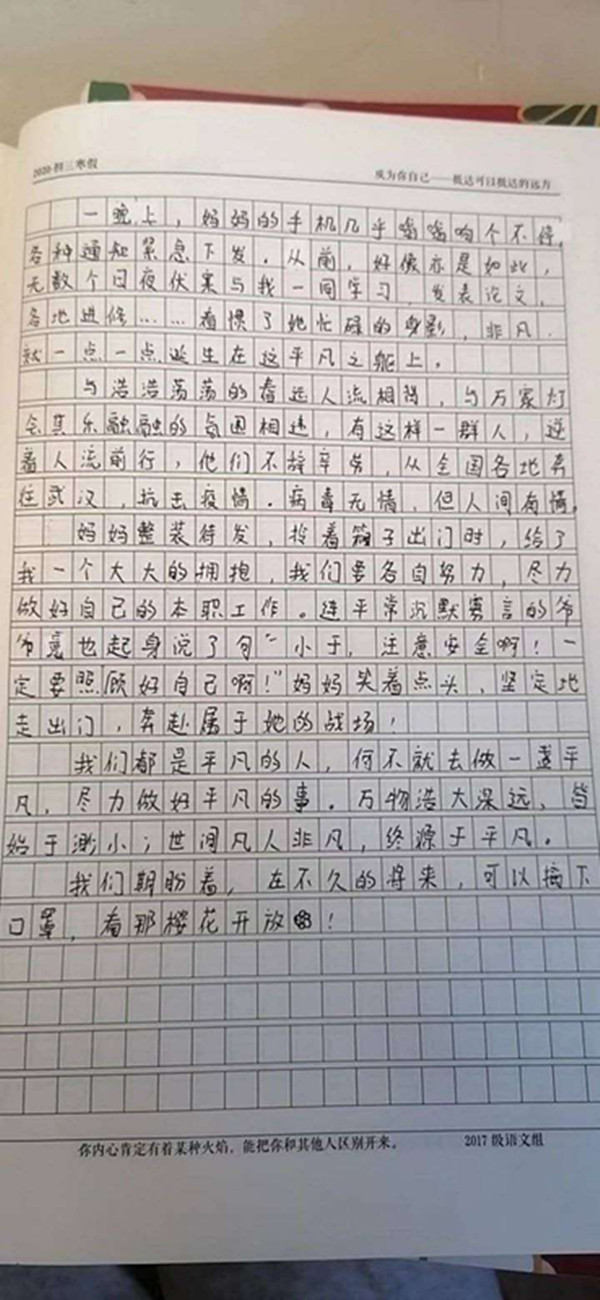 2020·初三寒假
成为你自己——抵达可以抵达的远方
一晚上，妈妈的手机几乎嗡嗡响个不停，
各种通知紧急下发。从前，好像亦是如此，
无数个日夜伏案与我一同学习，发表论文，
各地进修……看惯了她忙碌的身影，非凡
就一点一点诞生在这平凡之躯上。
与浩浩荡荡的春运人流相背，与万家灯
会其乐融融的氛围相违，有这样一群人，逆
着人流前行，他们不辞辛劳，从全国各地奔
往武汉，抗击疫情。病毒无情，但人间有情。
妈妈整装待发，拎着箱子出门时，给了
我一个大大的拥抱，我们要各自努力，尽力
做好自己的本职工作。连平常沉默寡言的爷
爷竟也起身说了句“小于，注意安全啊！一
定要照顾好自己啊！”妈妈笑着点头、坚定地
走出门，奔赴属于她的战场！
我们都是平凡的人，何不就去做一盏平
凡，尽力做好平凡的事。万物浩大深远，皆
始于渺小；世间凡人非凡，终源于平凡。
我们期盼着，在不久的将来，可以摘下
口罩，看那樱花开放！
你内心肯定有着某种火焰，能把你和其他人区别开来。
2017级语文组